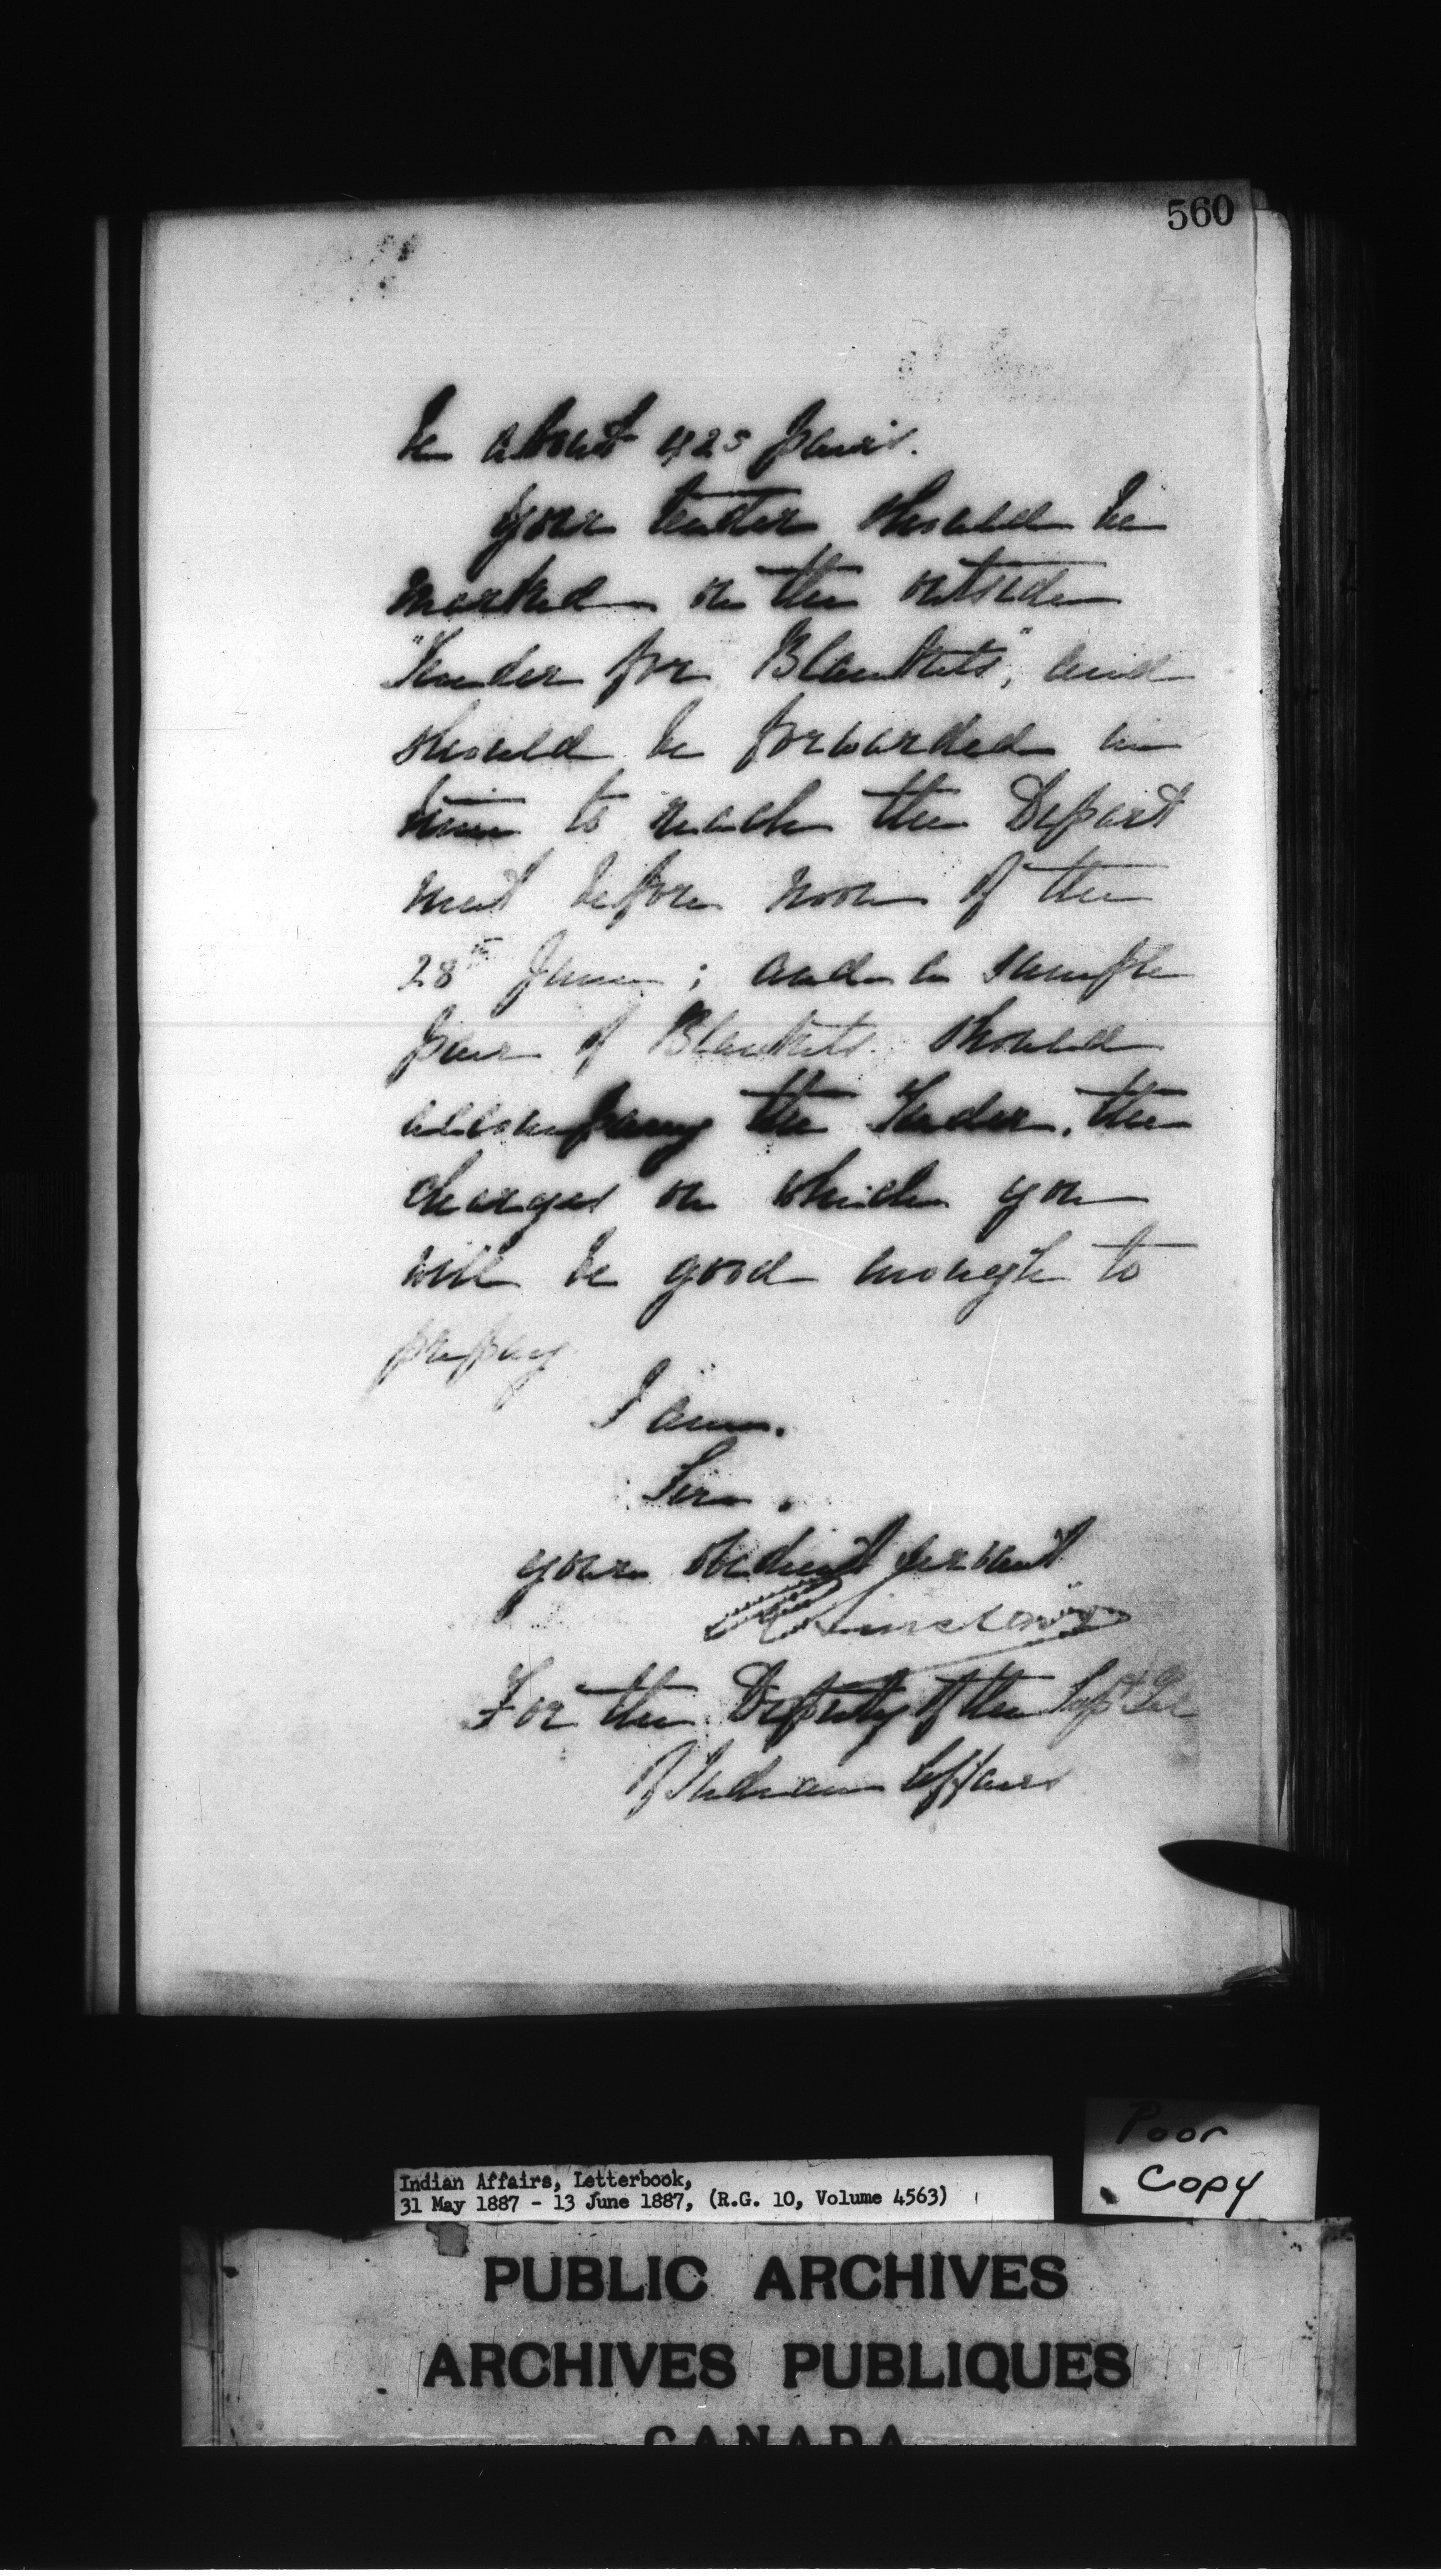 560
be about 425 pairs.
Your tender should be
marked on the outside
"Tender for Blankets", and
should be forwarded in
time to reach the Depart
ment before noon of the
28th June; and a sample
pair of Blankets should
accompany the Tender, the
charges on which you
will be good enough to
prepay
I am,
Sir,
your obedient servant
For the Deputy of the Supt Gen
of Indian Affairs
Poor
Copy
Indian Affairs, Letterbook,
31 May 1887 - 13 June 1887, (R.G. 10, Volume 4563)
PUBLIC ARCHIVES
ARCHIVES PUBLIQUES
CANADA